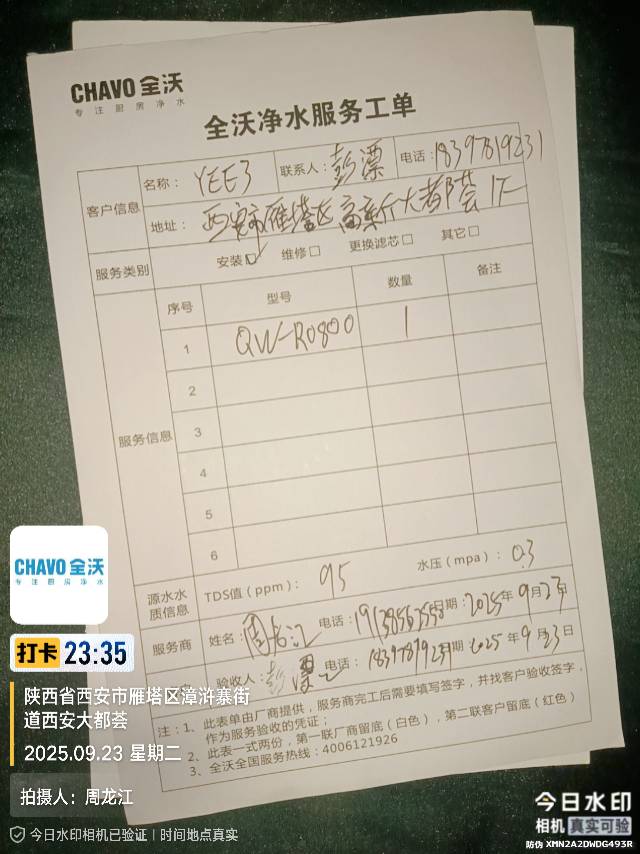 CHAVO 全沃
专注厨房净水
全沃净水服务工单
客户信息
名称： YEE3 联系人：彭漂 电话：18397819231
地址： 西安市雁塔区高新大都荟1F
服务类别 安装☑ 维修□ 更换滤芯□ 其它□
服务信息
序号 型号 数量 备注
1 QW-R0800 1
2
3
4
5
6
源水水质信息 TDS值（ppm）： 95 水压（mpa）： 0.3
服务商 姓名：周龙江 电话： 期：2025年9月23日
验收人：彭漂 电话：18397819231 期 2025年9月23日
注：1、此表单由厂商提供，服务商完工后需要填写签字，并找客户验收签字，
作为服务验收的凭证；
2、此表一式两份，第一联厂商留底（白色），第二联客户留底（红色）
3、全沃全国服务热线：4006121926
CHAVO 全沃
专注厨房净水
打卡 23:35
陕西省西安市雁塔区漳浒寨街
道西安大都荟
2025.09.23 星期二
拍摄人：周龙江
今日水印相机已验证｜时间地点真实
今日水印
相机 真实可验
防伪 XMN2A2DWDG493R